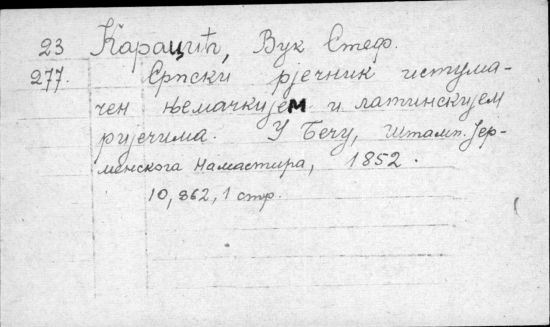 23 Караџић, Вук Стеф.
277. Српски рјечник истума-
чен њемачкијем и латинскијем
ријечима. У Бечу, штамп. Јер-
менскога намастира, 1852.
10, 862, 1 стр.